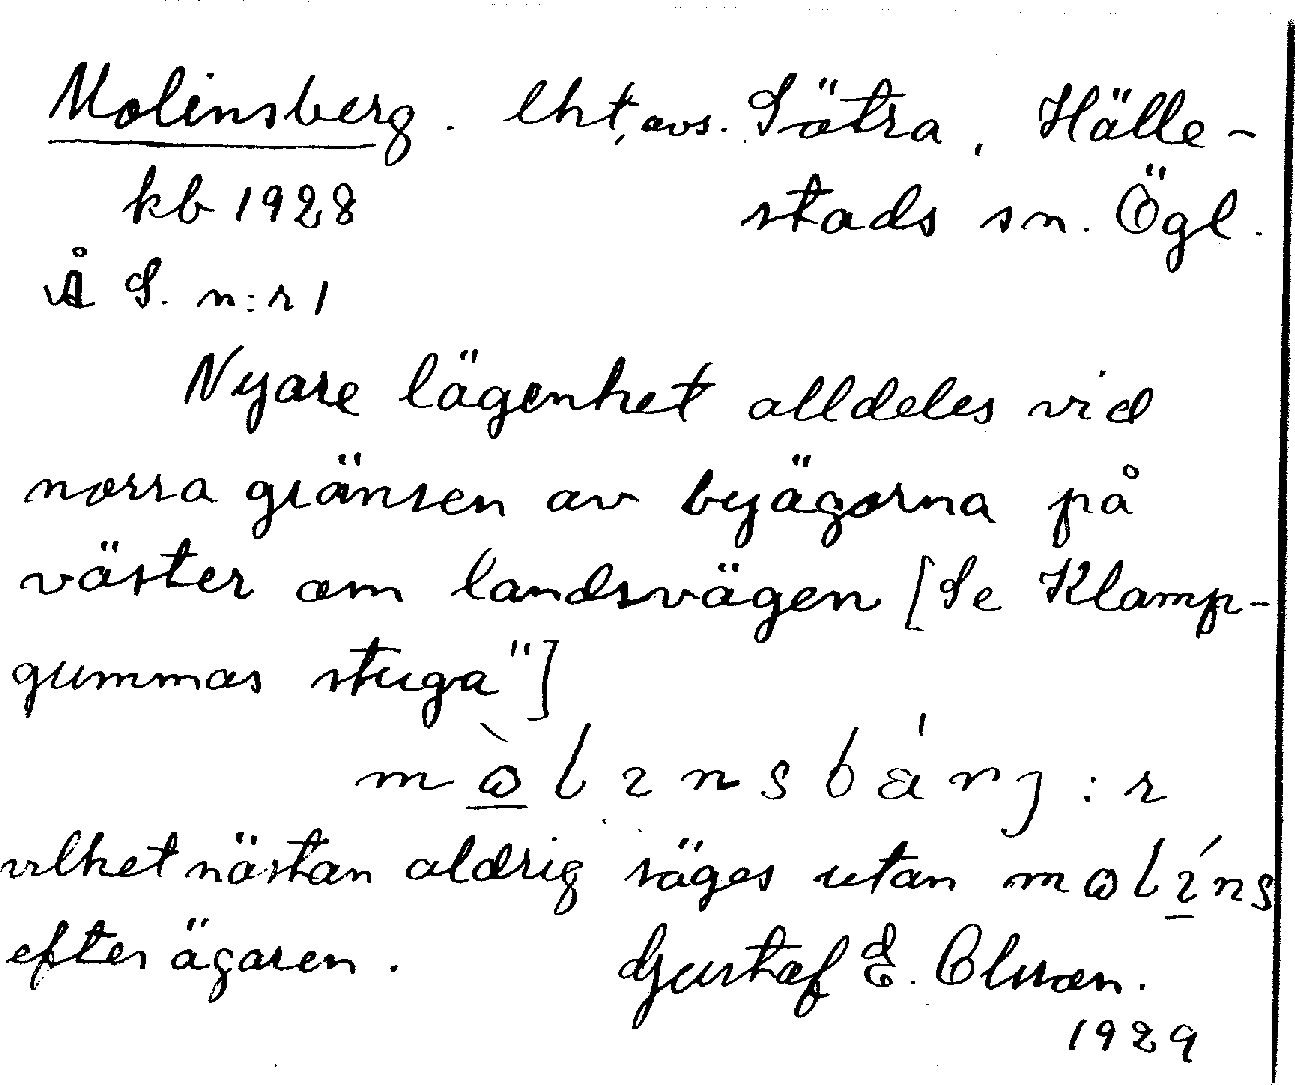 Molinsberg. lht, avs. Sätra, Hälle-
kb 1928 stads sn. Ögl.
Å S. n:r 1
Nyare lägenhet alldeles vid
norra gränsen av byägorna på
väster om landsvägen [Se Klamp-
gummas stuga"]
mòlinsbárj:r
vilket nästan aldrig säges utan molíns
efter ägaren. Gustaf E. Olsson.
1929